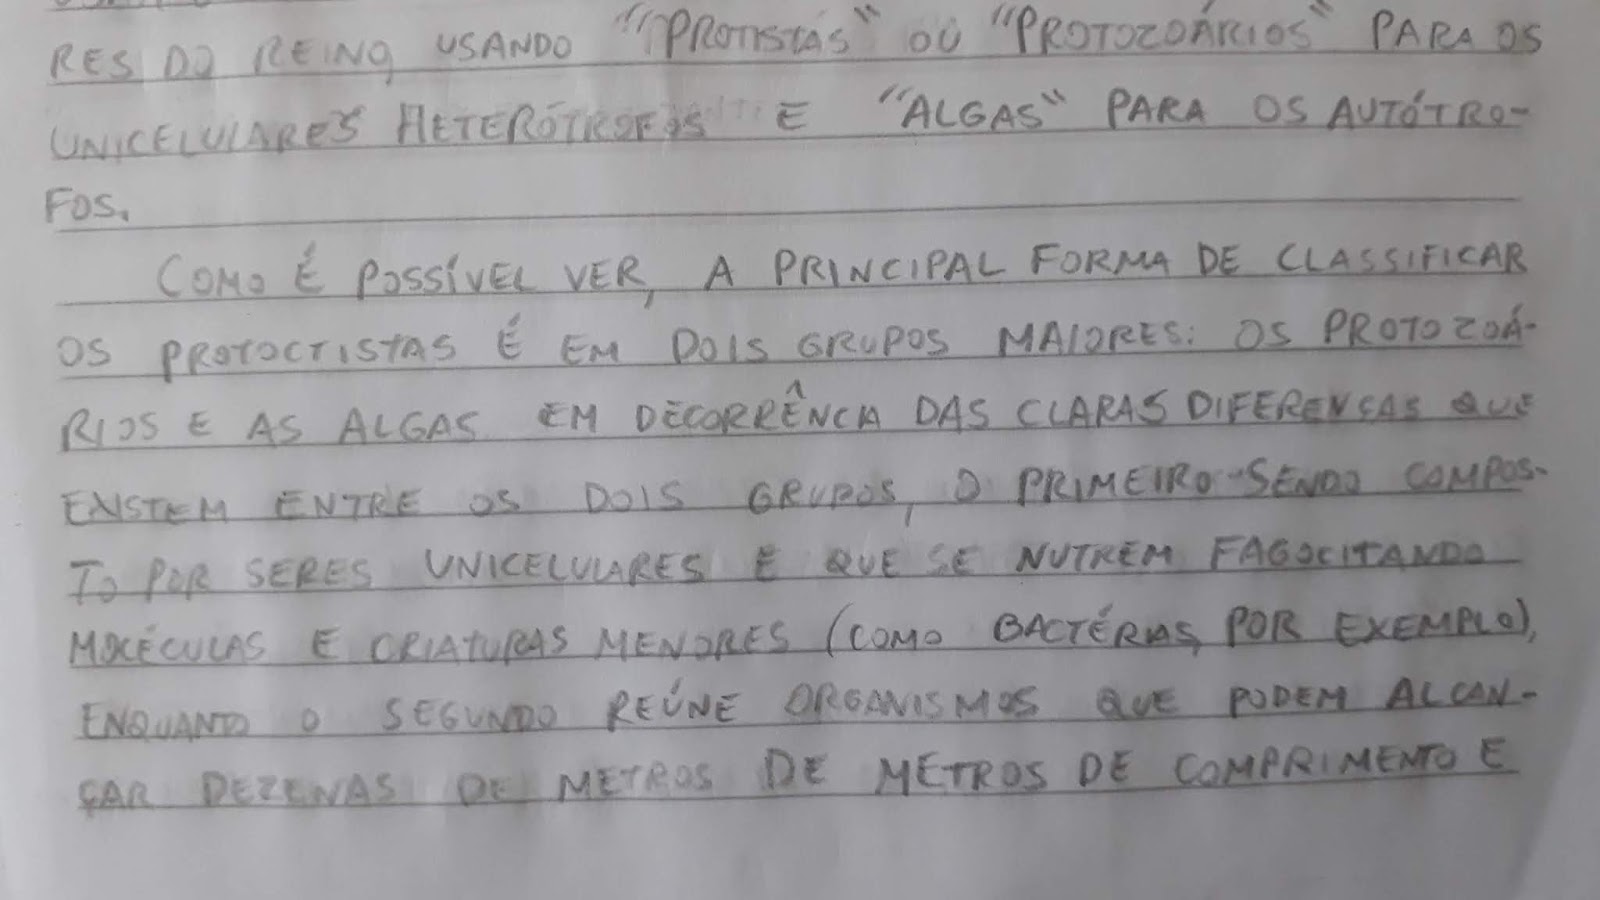 RES DO REINO, USANDO "PROTISTAS" OU "PROTOZOÁRIOS" PARA OS
UNICELULARES HETERÓTROFOS E "ALGAS" PARA OS AUTÓTRO-
FOS.
COMO É POSSÍVEL VER, A PRINCIPAL FORMA DE CLASSIFICAR
OS PROTOCTISTAS É EM DOIS GRUPOS MAIORES: OS PROTOZOÁ-
RIOS E AS ALGAS EM DECORRÊNCIA DAS CLARAS DIFERENÇAS QUE
EXISTEM ENTRE OS DOIS GRUPOS, O PRIMEIRO SENDO COMPOS-
TO POR SERES UNICELULARES E QUE SE NUTREM FAGOCITANDO
MOLÉCULAS E CRIATURAS MENORES (COMO BACTÉRIAS, POR EXEMPLO),
ENQUANTO O SEGUNDO REÚNE ORGANISMOS QUE PODEM ALCAN-
ÇAR DEZENAS DE METROS DE METROS DE COMPRIMENTO E